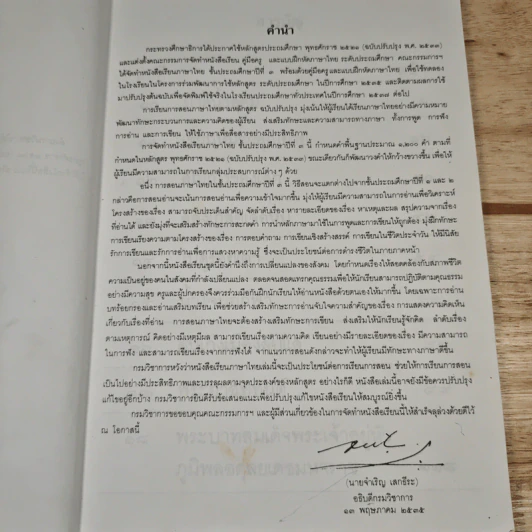 คำนำ
กระทรวงศึกษาธิการได้ประกาศใช้หลักสูตรประถมศึกษา พุทธศักราช ๒๕๒๑ (ฉบับปรับปรุง พ.ศ. ๒๕๓๓)
และแต่งตั้งคณะกรรมการจัดทำหนังสือเรียน คู่มือครู และแบบฝึกหัดภาษาไทย ระดับประถมศึกษา คณะกรรมการฯ
ได้จัดทำหนังสือเรียนภาษาไทย ชั้นประถมศึกษาปีที่ ๓ พร้อมด้วยคู่มือครูและแบบฝึกหัดภาษาไทย เพื่อใช้ทดลอง
ในโรงเรียนในโครงการร่วมพัฒนาการใช้หลักสูตร ระดับประถมศึกษา ในปีการศึกษา ๒๕๓๕ และติดตามผลการใช้
มาปรับปรุงต้นฉบับเพื่อจัดพิมพ์ใช้จริงในโรงเรียนประถมศึกษาทั่วประเทศในปีการศึกษา ๒๕๓๖ ต่อไป
การเรียนการสอนภาษาไทยตามหลักสูตร ฉบับปรับปรุง มุ่งเน้นให้ผู้เรียนได้เรียนภาษาไทยอย่างมีความหมาย
พัฒนาทักษะกระบวนการและความคิดของผู้เรียน ส่งเสริมทักษะและความสามารถทางภาษา ทั้งการพูด การฟัง
การอ่าน และการเขียน ให้ใช้ภาษาเพื่อสื่อสารอย่างมีประสิทธิภาพ
การจัดทำหนังสือเรียนภาษาไทย ชั้นประถมศึกษาปีที่ ๓ นี้ กำหนดคำพื้นฐานประมาณ ๑,๒๐๐ คำ ตามที่
กำหนดในหลักสูตร พุทธศักราช ๒๕๒๑ (ฉบับปรับปรุง พ.ศ. ๒๕๓๓) ขณะเดียวกันก็พัฒนาวงคำให้กว้างขวางขึ้น เพื่อให้
ผู้เรียนมีความสามารถในการเรียนกลุ่มประสบการณ์ต่าง ๆ ด้วย
อนึ่ง การสอนภาษาไทยในชั้นประถมศึกษาปีที่ ๓ นี้ วิธีสอนจะแตกต่างไปจากชั้นประถมศึกษาปีที่ ๑ และ ๒
กล่าวคือการสอนอ่านจะเน้นการสอนอ่านเพื่อความเข้าใจมากขึ้น มุ่งให้ผู้เรียนมีความสามารถในการอ่านเพื่อวิเคราะห์
โครงสร้างของเรื่อง สามารถจับประเด็นสำคัญ จัดลำดับเรื่อง หารายละเอียดของเรื่อง หาเหตุและผล สรุปความจากเรื่อง
ที่อ่านได้ และยังมุ่งที่จะเสริมสร้างทักษะการสะกดคำ การนำหลักภาษามาใช้ในการพูดและการเขียนให้ถูกต้อง มุ่งฝึกทักษะ
การเขียนเรื่องความตามโครงสร้างของเรื่อง การตอบคำถาม การเขียนเชิงสร้างสรรค์ การเขียนในชีวิตประจำวัน ให้มีนิสัย
รักการเขียนและรักการอ่านเพื่อการแสวงหาความรู้ ซึ่งจะเป็นประโยชน์ต่อการดำรงชีวิตในภายภาคหน้า
นอกจากนี้หนังสือเรียนชุดนี้ยังคำนึงถึงการเปลี่ยนแปลงของสังคม โดยกำหนดเรื่องให้สอดคล้องกับสภาพชีวิต
ความเป็นอยู่ของคนในสังคมที่กำลังเปลี่ยนแปลง ตลอดจนสอดแทรกคุณธรรมเพื่อให้นักเรียนสามารถปฏิบัติตามคุณธรรม
อย่างมีความสุข ครูและผู้ปกครองจึงควรร่วมมือกันฝึกนักเรียนให้อ่านหนังสือด้วยตนเองให้มากขึ้น โดยเฉพาะการอ่าน
บทร้อยกรองและอ่านเสริมบทเรียน เพื่อช่วยสร้างเสริมทักษะการอ่านจับใจความสำคัญของเรื่อง การแสดงความคิดเห็น
เกี่ยวกับเรื่องที่อ่าน การสอนภาษาไทยจะต้องสร้างเสริมทักษะการเขียน ส่งเสริมให้นักเรียนรู้จักคิด ลำดับเรื่อง
ตามเหตุการณ์ คิดอย่างมีเหตุมีผล สามารถเขียนเรื่องตามความคิด เขียนอย่างมีรายละเอียดของเรื่อง มีความสามารถ
ในการฟัง และสามารถเขียนเรื่องจากการฟังได้ จากแนวการสอนดังกล่าวจะทำให้ผู้เรียนมีทักษะทางภาษาดีขึ้น
กรมวิชาการหวังว่าหนังสือเรียนภาษาไทยเล่มนี้จะเป็นประโยชน์ต่อการเรียนการสอน ช่วยให้การเรียนการสอน
เป็นไปอย่างมีประสิทธิภาพและบรรลุผลตามจุดประสงค์ของหลักสูตร อย่างไรก็ดี หนังสือเล่มนี้อาจยังมีข้อควรปรับปรุง
แก้ไขอยู่อีกบ้าง กรมวิชาการยินดีรับข้อเสนอแนะเพื่อปรับปรุงแก้ไขหนังสือเรียนให้สมบูรณ์ยิ่งขึ้น
กรมวิชาการขอขอบคุณคณะกรรมการฯ และผู้มีส่วนเกี่ยวข้องในการจัดทำหนังสือเรียนนี้ให้สำเร็จลุล่วงด้วยดีไว้
ณ โอกาสนี้
(นายจำเริญ เสกธีระ)
อธิบดีกรมวิชาการ
๑๓ พฤษภาคม ๒๕๓๕